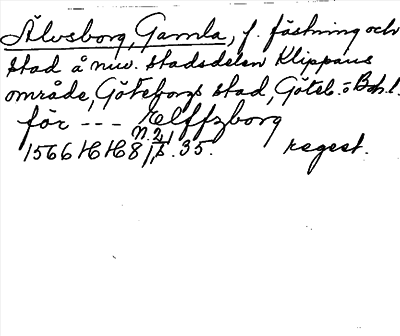 Älvsborg, Gamla, f. fästning och
stad å nuv. stadsdelen Klippans
område, Göteborgs stad, Göteb. o. Boh. l.
för --- Elffzborg
n. 2
1566 HH 8 / s. 35. regest.